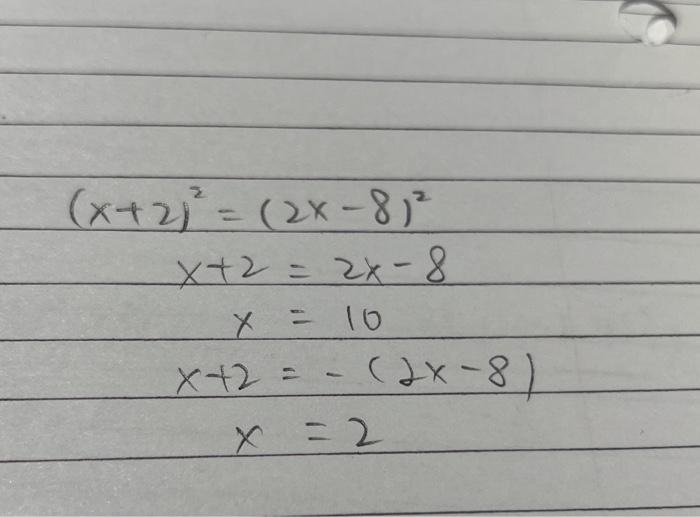 (x+2)² = (2x-8)²
x+2 = 2x-8
x = 10
x+2 = -(2x-8)
x = 2